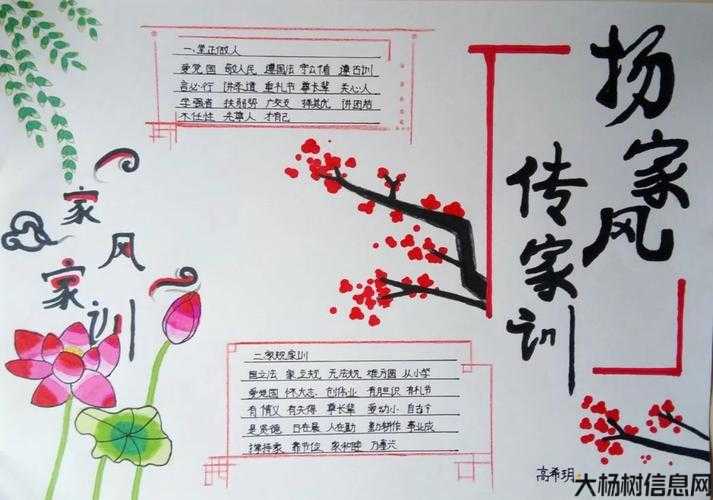 扬家风
传家训
家风
家训
一、学正做人
爱党国 敬人民 遵国法 守公德 遵古训
言必行 讲孝道 重礼节 尊长辈 关心人
学强者 扶弱势 广交友 择其优
不任性 先尊人 才有己
二、家规家训
国立法 家立规 无法规 难方圆 从小学
爱党国 怀大志 创伟业 有胆识 有礼节
有情义 有失得 尊长辈 爱幼小
日在晨 人在勤 勤耕作 事业成
春节俭 家和睦 万事兴
高希玥
大杨树信息网